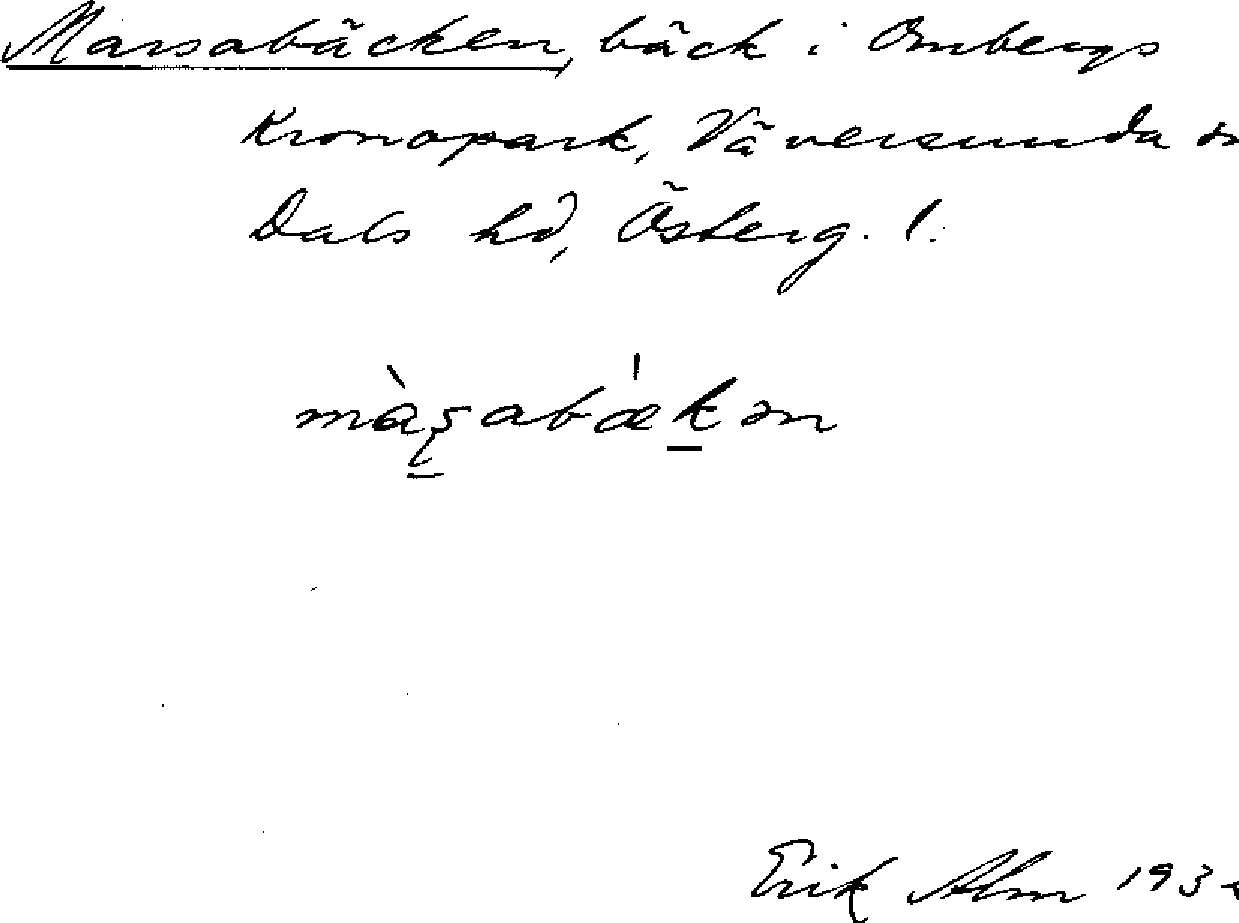 Marsabäcken, bäck i Ombergs
Kronopark, Väversunda sn
Dals hd, Österg. l.
màʂabǽkən
Erik Alm